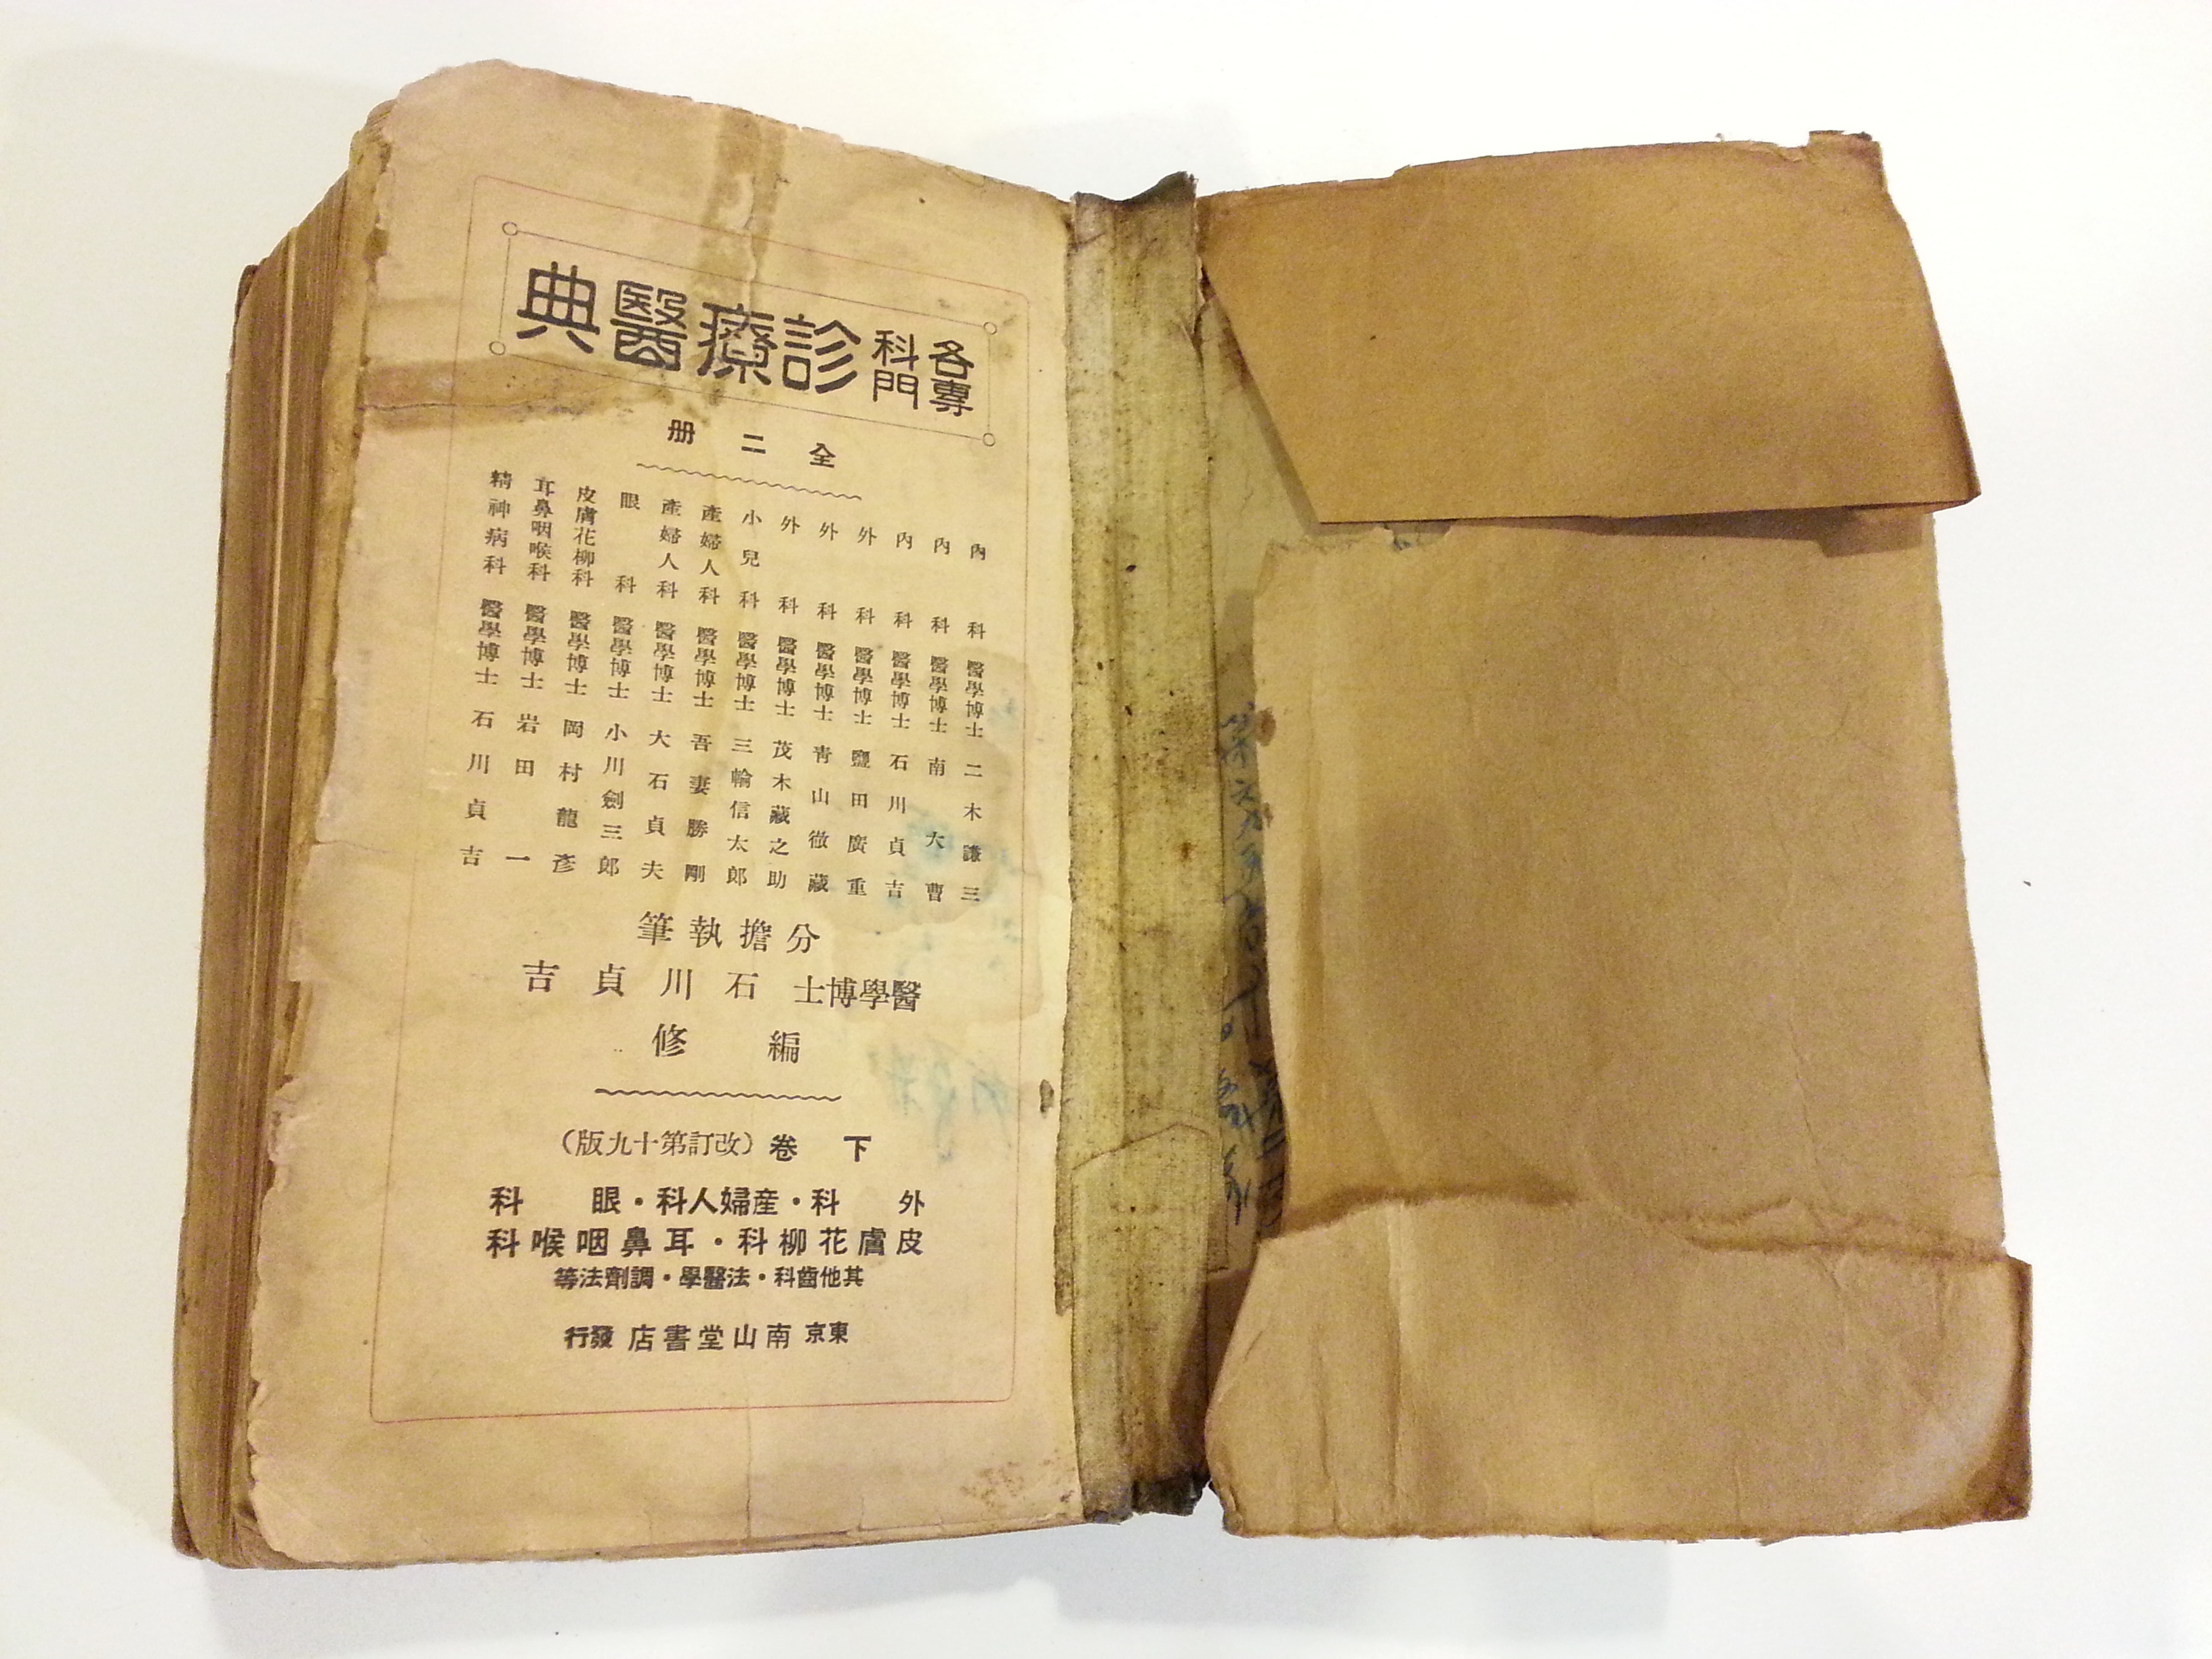 各專科門診療醫典
全二册
內科 醫學博士 二木謙三
內科 醫學博士 南大曹
內科 醫學博士 石川貞吉
外科 醫學博士 鹽田廣重
外科 醫學博士 靑山徹藏
外科 醫學博士 茂木藏之助
小兒科 醫學博士 三輪信太郞
產婦人科 醫學博士 吾妻勝剛
產婦人科 醫學博士 大石貞夫
眼科 醫學博士 小川劍三郞
皮膚花柳科 醫學博士 岡村龍彥
耳鼻咽喉科 醫學博士 岩田一
精神病科 醫學博士 石川貞吉
分擔執筆
醫學博士 石川貞吉
編修
下卷（改訂第十九版）
外科・產婦人科・眼科
皮膚花柳科・耳鼻咽喉科
其他齒科・法醫學・調劑法等
東京 南山堂書店 發行